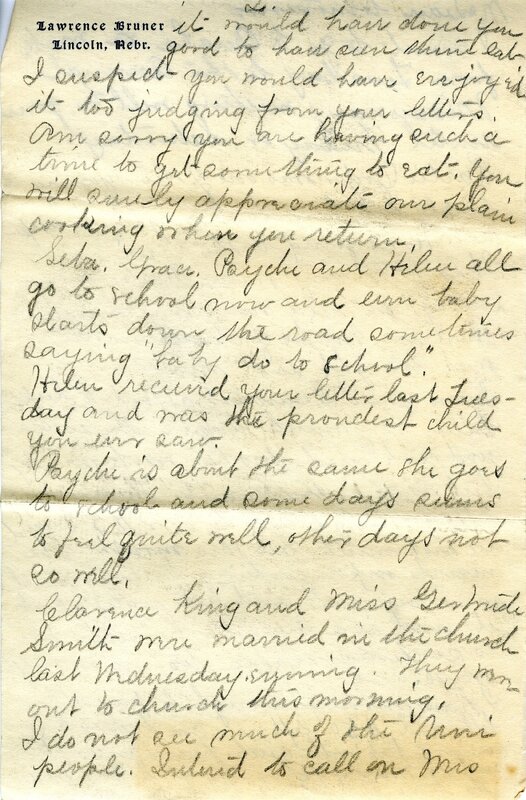 Lawrence Bruner
Lincoln, Nebr.
it would have done you
good to have seen them eat.
I suspect you would have enjoyed
it too judging from your letters.
Am sorry you are having such a
time to get something to eat. You
will surely appreciate our plain
cooking when you return.
Psyche and Helen all
go to school now and even baby
starts down the road sometimes
saying "baby do to school".
Helen received your letter last Tues-
day and was the proudest child
you ever saw.
Psyche is about the same she goes
to school and some days seems
to feel quite well, other days not
so well.
Clarence King and Miss Gertrude
Smith were married in the church
last Wednesday evening. They were
out to church this morning.
I do not see much of the Uni
people. Intend to call on Mrs